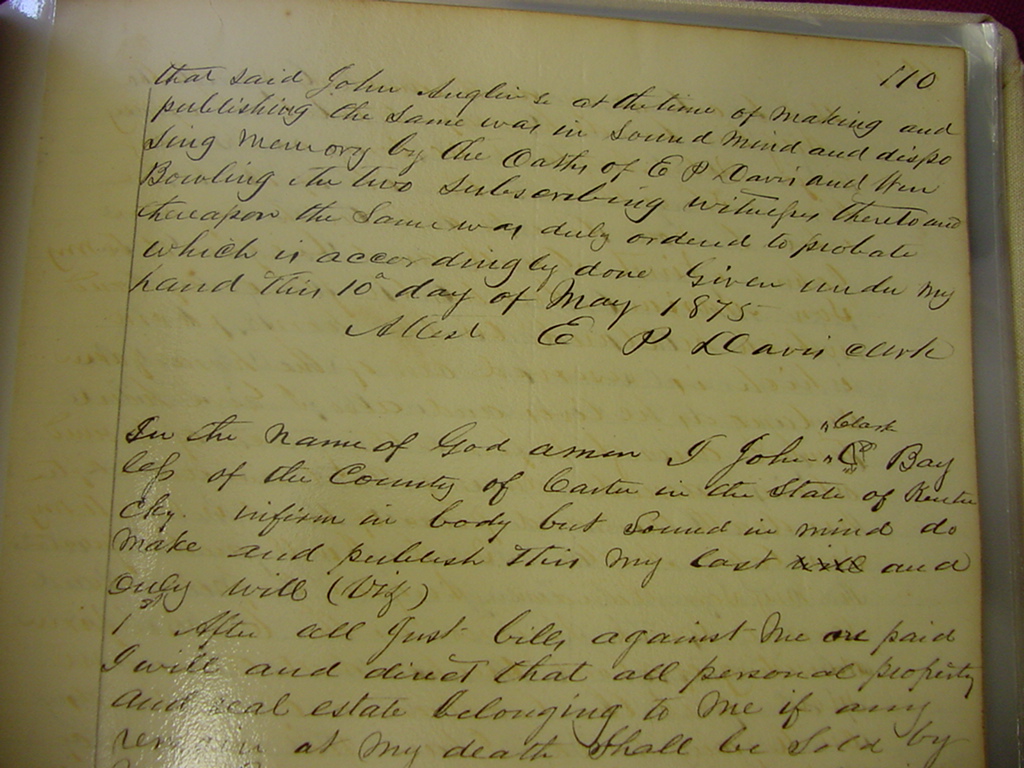 110
that said John Anglin Sr at the time of making and
publishing the same was in Sound Mind and dispo
sing Memory by the Oaths of E P Davis and Wm
Bowling the two Subscribing witnesses thereto and
thereupon the Same was duly ordered to probate
which is accordingly done Given under my
hand this 10 day of May 1875
Attest E P Davis clerk
"Clark
In the name of God amen I John " C Bay
less of the County of Carter in the State of Kentu
cky. infirm in body but Sound in mind do
Make and publish this my last will and
only will (Viz)
1st After all Just bills against me are paid
I will and direct that all personal property
and real estate belonging to me if any
remain at my death shall be sold by